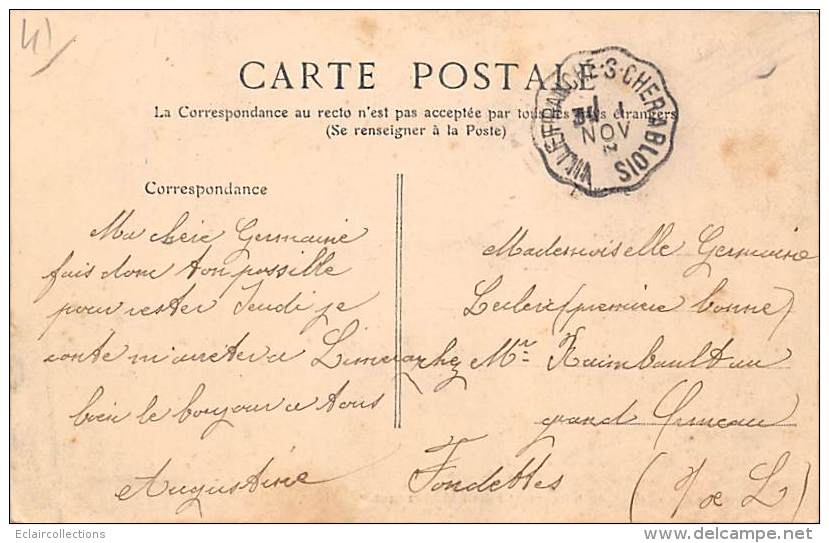 41
CARTE POSTALE
La Correspondance au recto n'est pas acceptée par tous les pays étrangers
(Se renseigner à la Poste)
VILLEFRANCHE-S-CHER A BLOIS
NOV
Correspondance
Ma chère Germaine
fais donc ton possible
pour rester Jeudi je
conte m'arreter a
bien le bonjour a tous
Augustine
Mademoiselle Germaine
Leclerc (première bonne)
chez Mr Raimbault au
grand Ormeau
Fondettes
(I & L)
Eclaircollections
www.delcampe.net